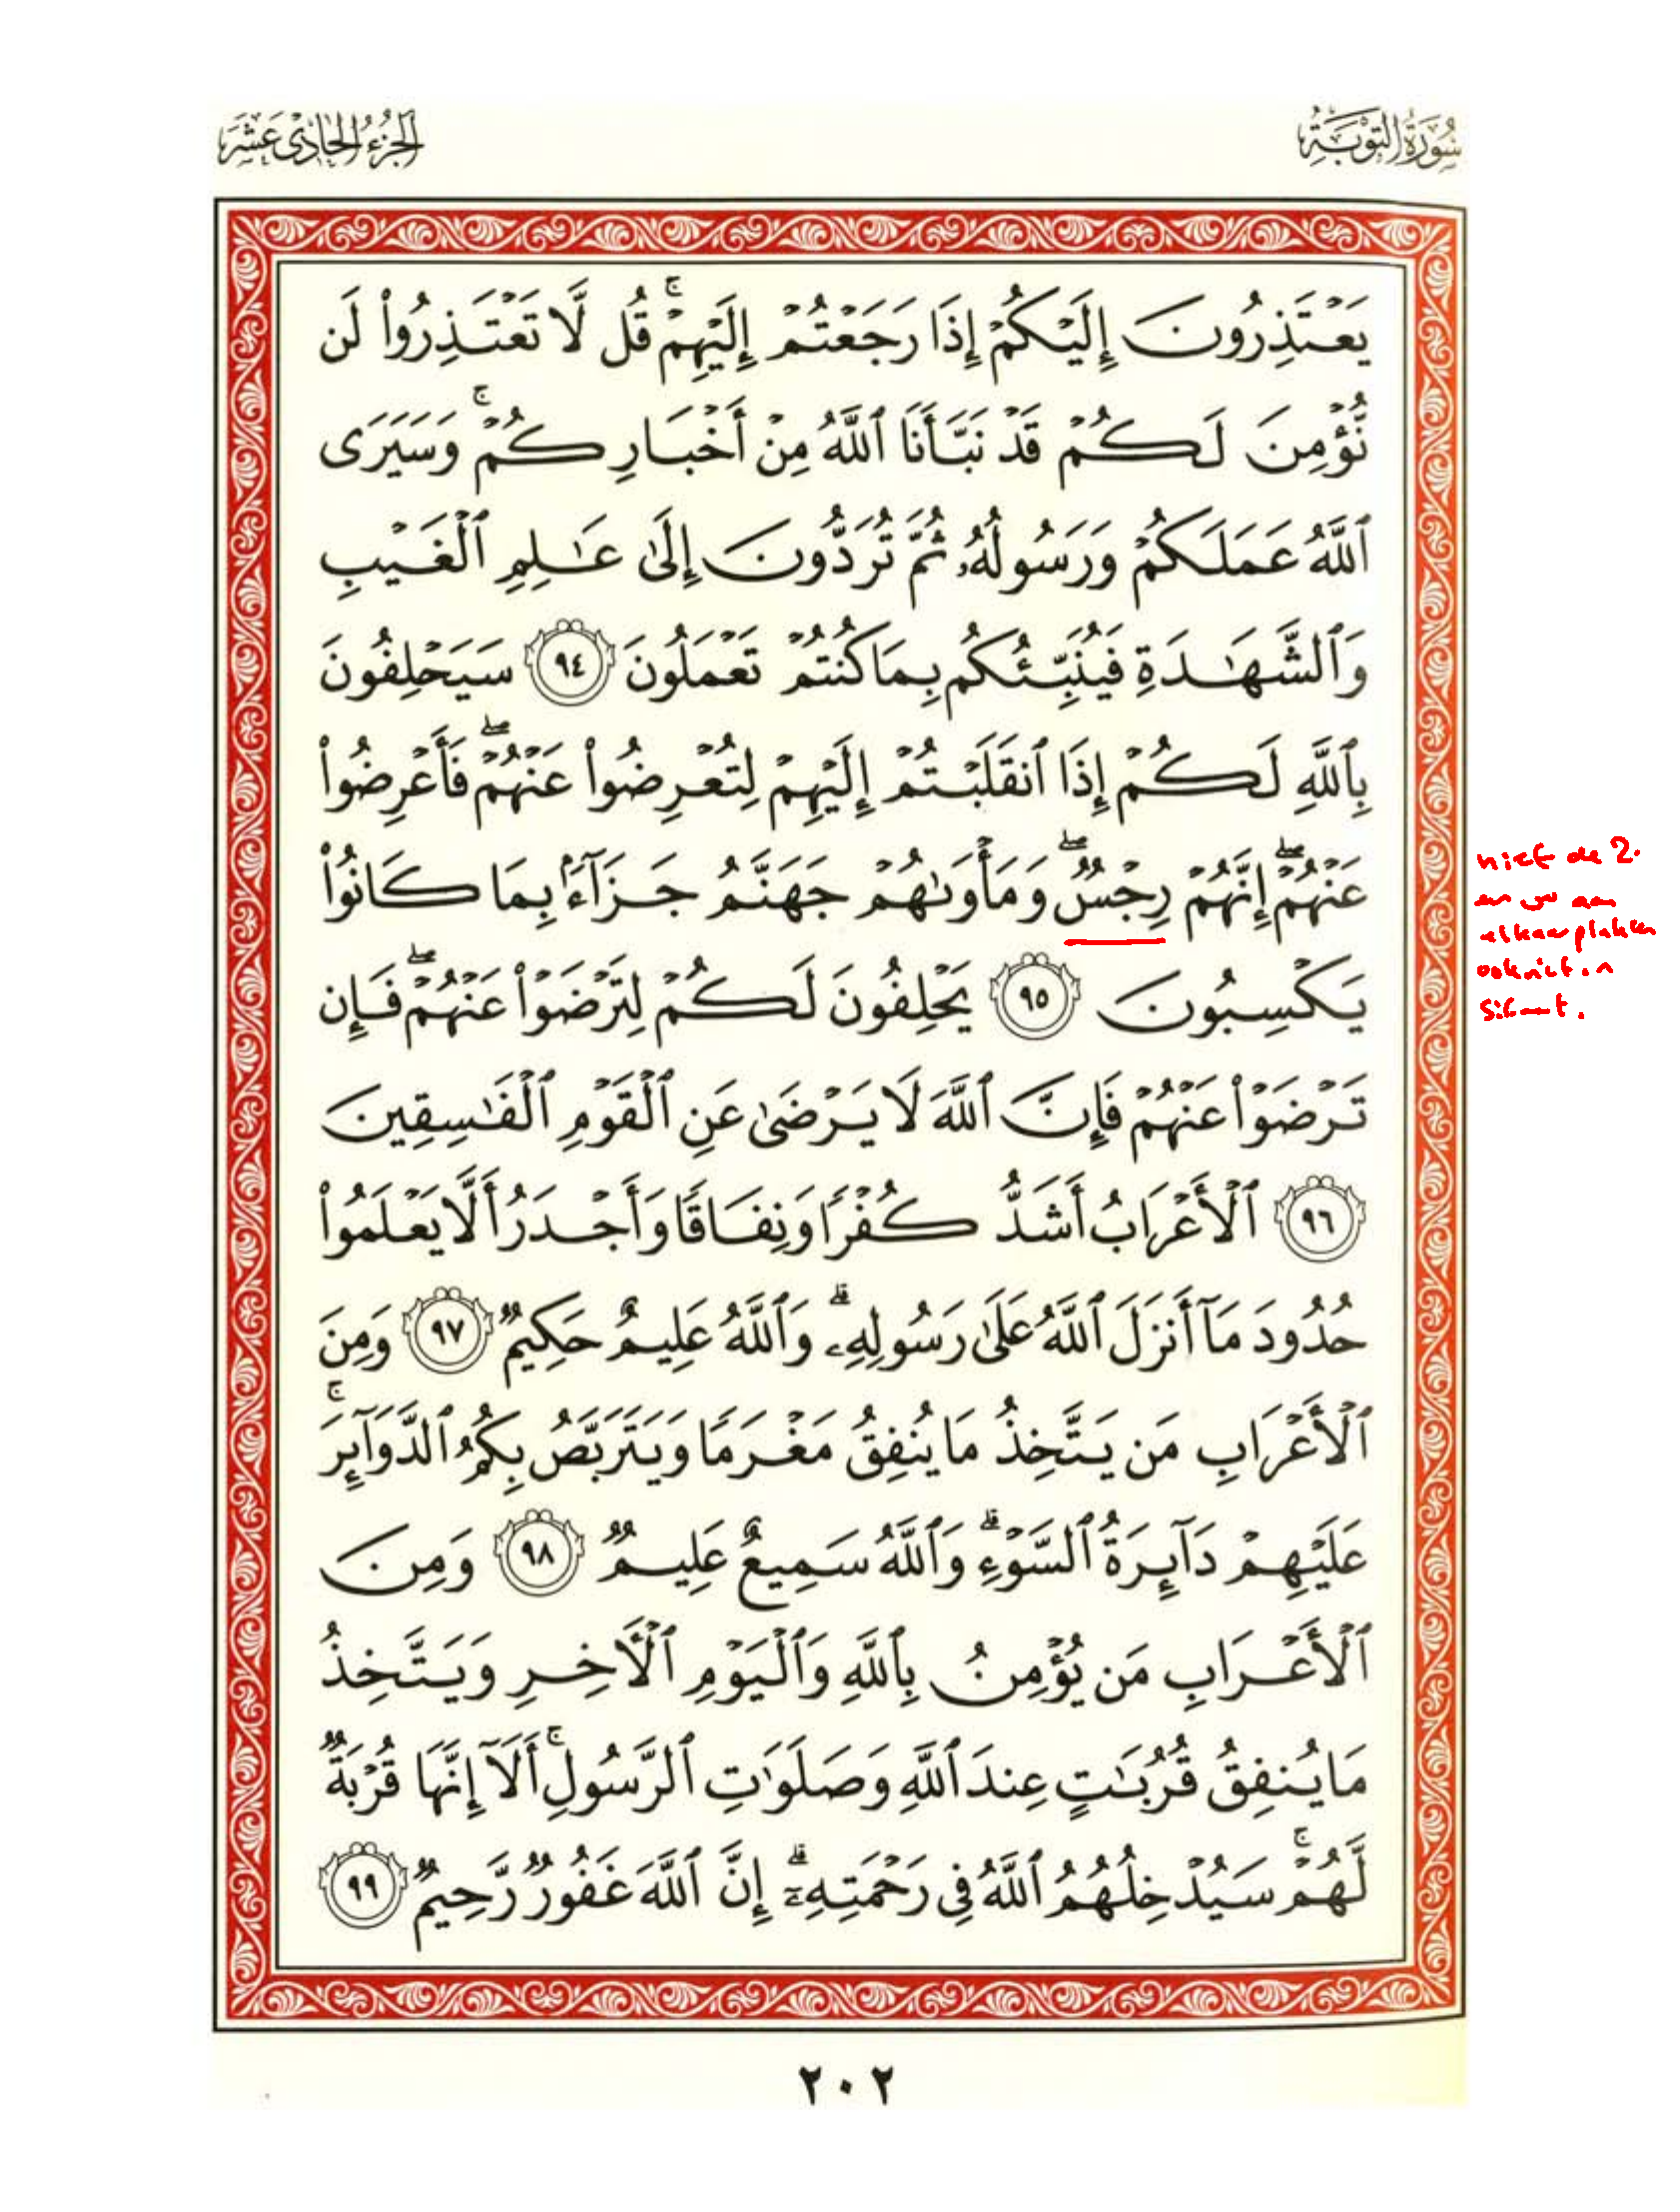 سُورَةُ التَّوْبَةِ
الجُزْءُ الحَادِي عَشَرَ
يَعْتَذِرُونَ إِلَيْكُمْ إِذَا رَجَعْتُمْ إِلَيْهِمْ ۚ قُل لَّا تَعْتَذِرُوا۟ لَن
نُّؤْمِنَ لَكُمْ قَدْ نَبَّأَنَا ٱللَّهُ مِنْ أَخْبَارِكُمْ ۚ وَسَيَرَى
ٱللَّهُ عَمَلَكُمْ وَرَسُولُهُۥ ثُمَّ تُرَدُّونَ إِلَىٰ عَـٰلِمِ ٱلْغَيْبِ
وَٱلشَّهَـٰدَةِ فَيُنَبِّئُكُم بِمَا كُنتُمْ تَعْمَلُونَ ٩٤ سَيَحْلِفُونَ
بِٱللَّهِ لَكُمْ إِذَا ٱنقَلَبْتُمْ إِلَيْهِمْ لِتُعْرِضُوا۟ عَنْهُمْ ۖ فَأَعْرِضُوا۟
عَنْهُمْ ۖ إِنَّهُمْ رِجْسٌ ۖ وَمَأْوَىٰهُمْ جَهَنَّمُ جَزَآءًۢ بِمَا كَانُوا۟
يَكْسِبُونَ ٩٥ يَحْلِفُونَ لَكُمْ لِتَرْضَوْا۟ عَنْهُمْ ۖ فَإِن
تَرْضَوْا۟ عَنْهُمْ فَإِنَّ ٱللَّهَ لَا يَرْضَىٰ عَنِ ٱلْقَوْمِ ٱلْفَـٰسِقِينَ
٩٦ ٱلْأَعْرَابُ أَشَدُّ كُفْرًا وَنِفَاقًا وَأَجْدَرُ أَلَّا يَعْلَمُوا۟
حُدُودَ مَآ أَنزَلَ ٱللَّهُ عَلَىٰ رَسُولِهِۦ ۗ وَٱللَّهُ عَلِيمٌ حَكِيمٌ ٩٧ وَمِنَ
ٱلْأَعْرَابِ مَن يَتَّخِذُ مَا يُنفِقُ مَغْرَمًا وَيَتَرَبَّصُ بِكُمُ ٱلدَّوَآئِرَ ۚ
عَلَيْهِمْ دَآئِرَةُ ٱلسَّوْءِ ۗ وَٱللَّهُ سَمِيعٌ عَلِيمٌ ٩٨ وَمِنَ
ٱلْأَعْرَابِ مَن يُؤْمِنُ بِٱللَّهِ وَٱلْيَوْمِ ٱلْـَٔاخِرِ وَيَتَّخِذُ
مَا يُنفِقُ قُرُبَـٰتٍ عِندَ ٱللَّهِ وَصَلَوَٰتِ ٱلرَّسُولِ ۚ أَلَآ إِنَّهَا قُرْبَةٌ
لَّهُمْ ۚ سَيُدْخِلُهُمُ ٱللَّهُ فِى رَحْمَتِهِۦٓ ۗ إِنَّ ٱللَّهَ غَفُورٌ رَّحِيمٌ ٩٩
٢٠٢
niet de 2.
en aan
elkaar plakken
ook niet in
sifaat.